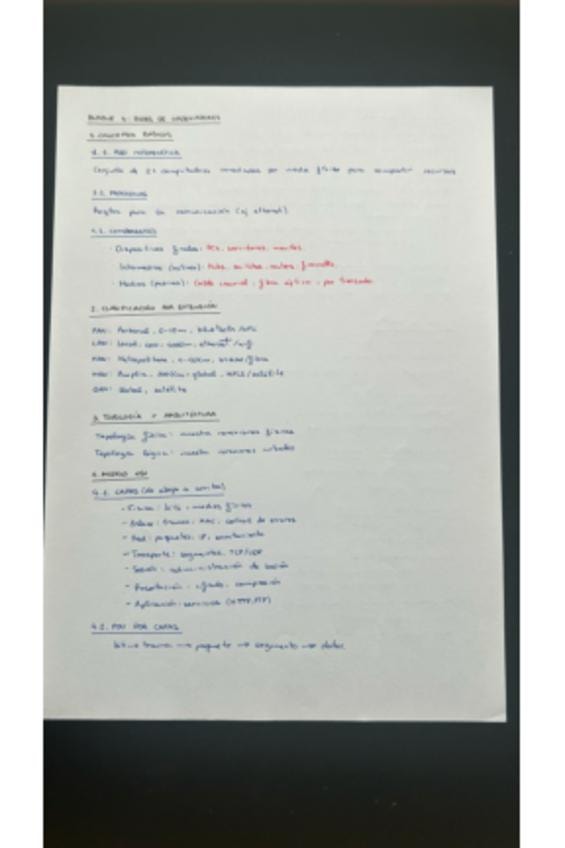 BLOQUE 1: REDES DE ORDENADORES
1. CONCEPTOS BÁSICOS
1.1. RED INFORMÁTICA
Conjunto de 2+ computadoras conectadas por medio físico para compartir recursos
1.2. PROTOCOLOS
Reglas para la comunicación (ej ethernet)
1.3. COMPONENTES
· Dispositivos finales: PCs, servidores, móviles.
· Intermedios (activos): hubs, switches, routers, firewalls.
· Medios (pasivos): cable coaxial, fibra óptica, par trenzado.
2. CLASIFICACIÓN POR EXTENSIÓN
PAN: Personal, 0-10m, bluetooth /
LAN: Local, ethernet /
MAN: Metropolitana,
WAN: Amplia, global, /satélite
GAN: Global, satélite
3. TOPOLOGÍA Y ARQUITECTURA
Topología física: muestra conexiones físicas
Topología lógica: muestra conexiones
4. MODELO OSI
4.1. CAPAS (de abajo a arriba)
- Física: bits, medios físicos
- Enlace: tramas, MAC, control de errores
- Red: paquetes, IP, enrutamiento
- Transporte: segmentos, TCP/UDP
- Sesión: administración de sesión
- Presentación: cifrado, compresión
- Aplicación: servicios (HTTP, FTP)
4.2. PDU POR CAPAS
bit → trama → paquete → segmento → datos